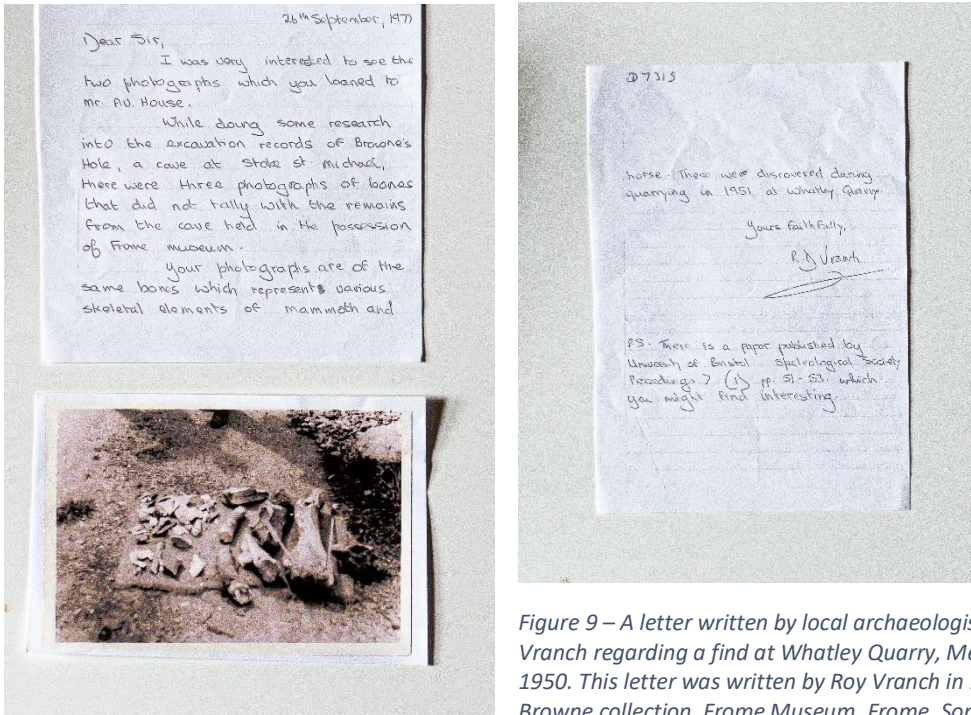 26th September, 197
Dear Sir,
I was very interested to see the
two photographs which you loaned to
mr. A.U. House.
While doing some research
into the excavation records of Browne's
Hole, a cave at Stoke st. michael,
there were three photographs of bones
that did not tally with the remains
from the cave held in the possession
of Frome museum.
Your photographs are of the
same bones which represents various
skeletal elements of mammoth and
D7315
horse. These were discovered during
quarrying in 1951 at Whatley Quarry.
Yours faithfully,
R.D Vranch
P.S. There is a paper published by
University of Bristol Speleological Society
Proceedings 7 (1) pp. 51-53. which
you might find interesting.
Figure 9 – A letter written by local archaeologis
Vranch regarding a find at Whatley Quarry, Me
1950. This letter was written by Roy Vranch in
Browne collection, Frome Museum, Frome, Som